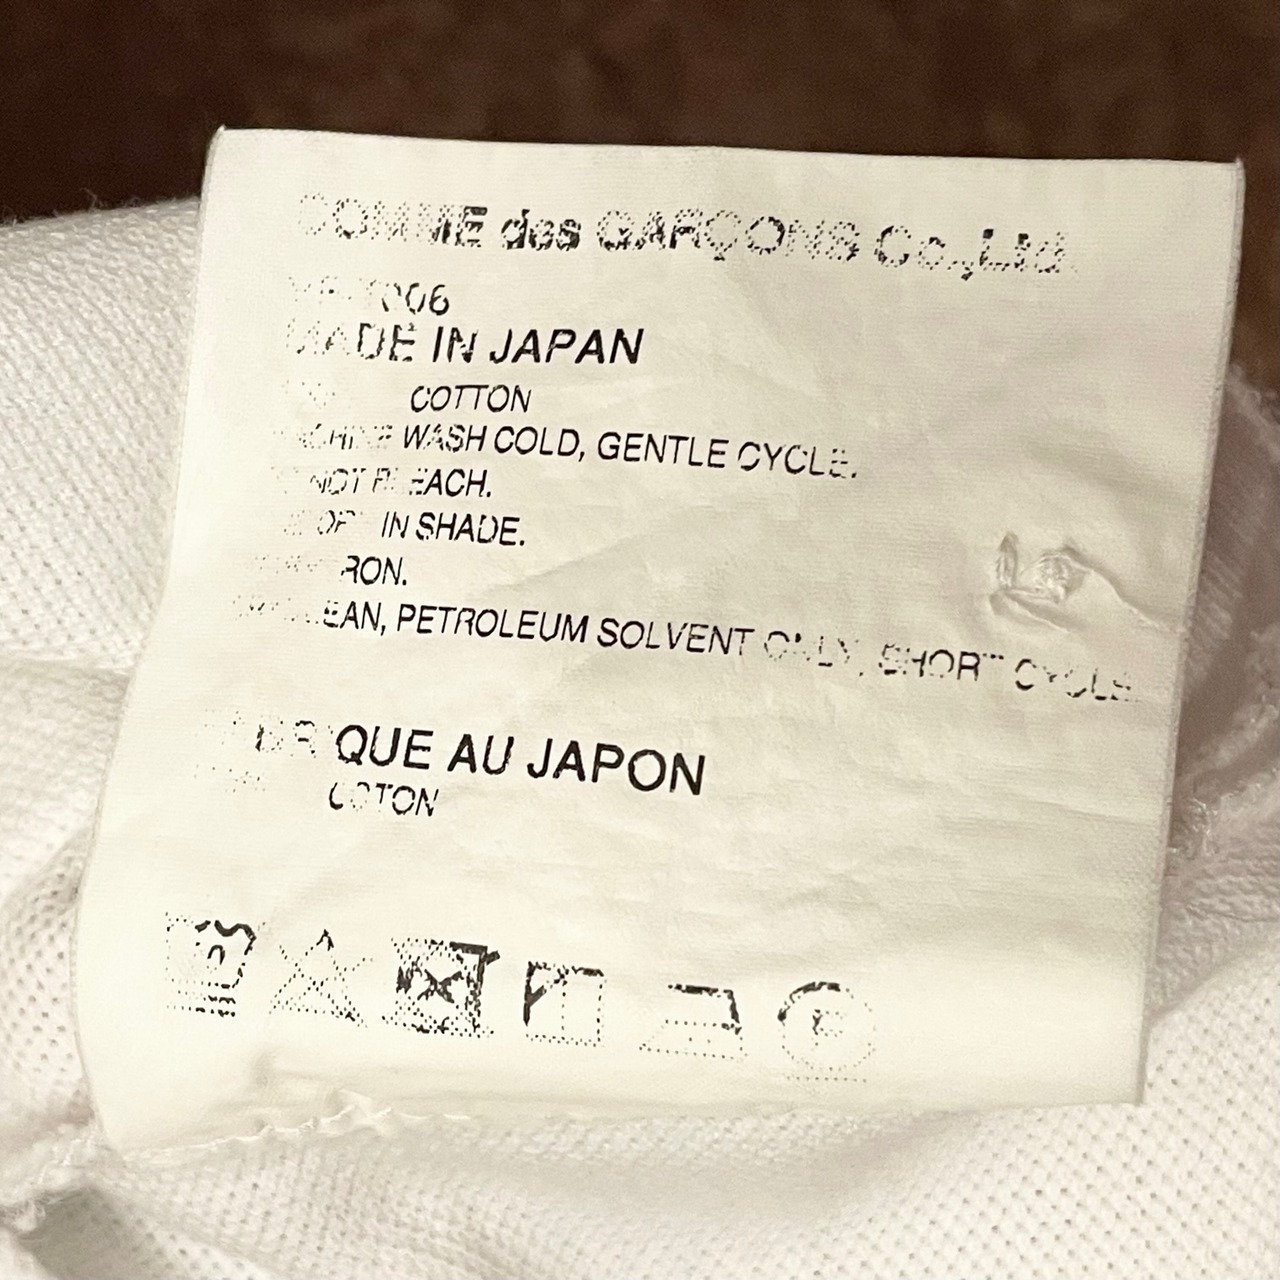 COMME des GARÇONS Co.,Ltd.
MADE IN JAPAN
COTTON
MACHINE WASH COLD, GENTLE CYCLE.
NOT BLEACH.
IN SHADE.
IRON.
CLEAN, PETROLEUM SOLVENT ONLY, SHORT CYCLE.
FABRIQUE AU JAPON
COTON